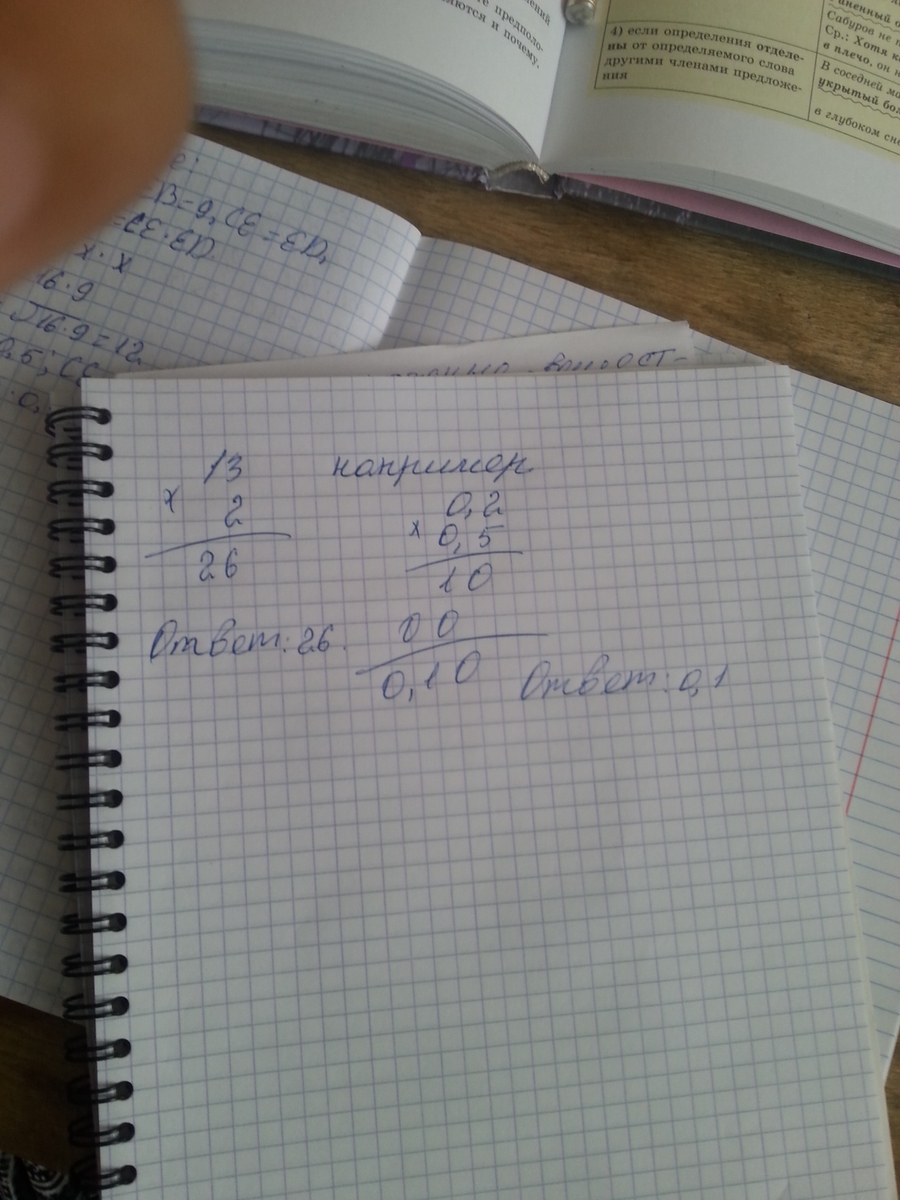 нений
те предполо-
няются и почему.
4) если определения отделе-
ны от определяемого слова
другими членами предложе-
ния
Сабуров не п
Ср.: Хотя к
в плечо, он н
В соседней
укрытый
в глубоком
B=9, CE=ED,
=CE·ED
x·x
16·9
√16·9=12
13
x 2
26
Ответ: 26.
например
0,2
x 0,5
10
00
0,10
Ответ: 0,1